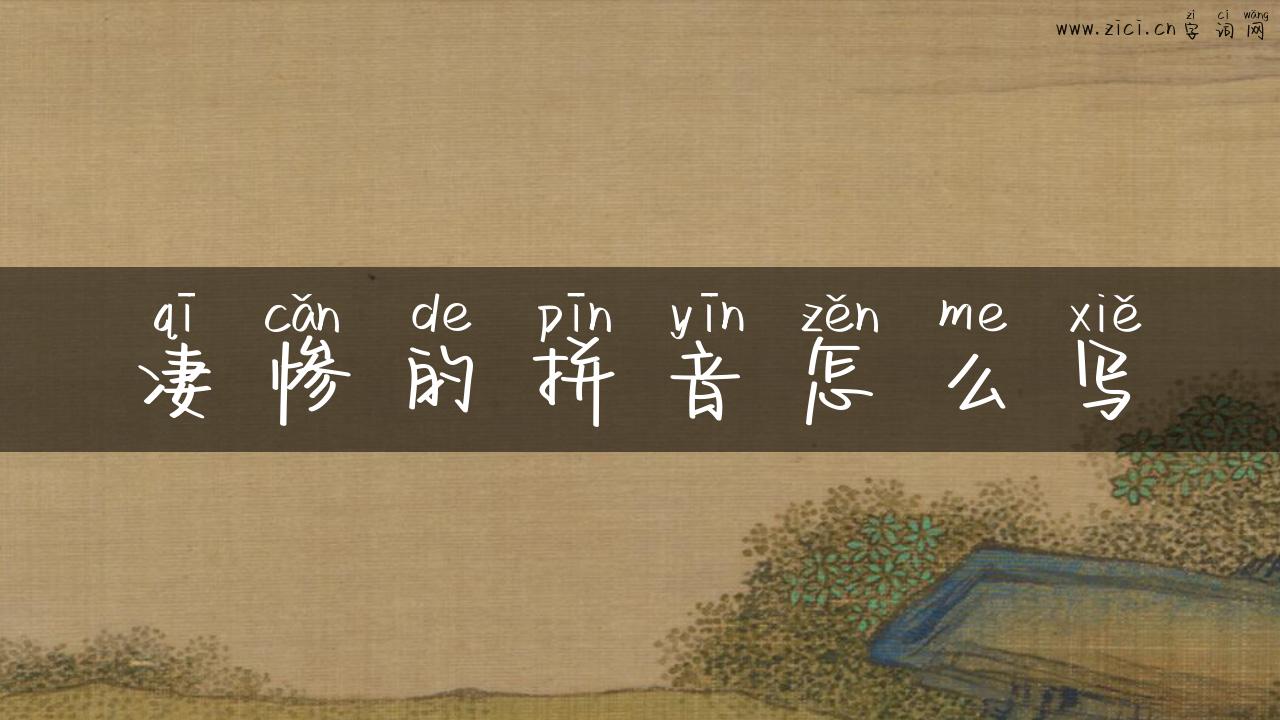 zì cí wǎng
www.zici.cn 字 词 网
qī cǎn de pīn yīn zěn me xiě
凄 惨 的 拼 音 怎 么 写